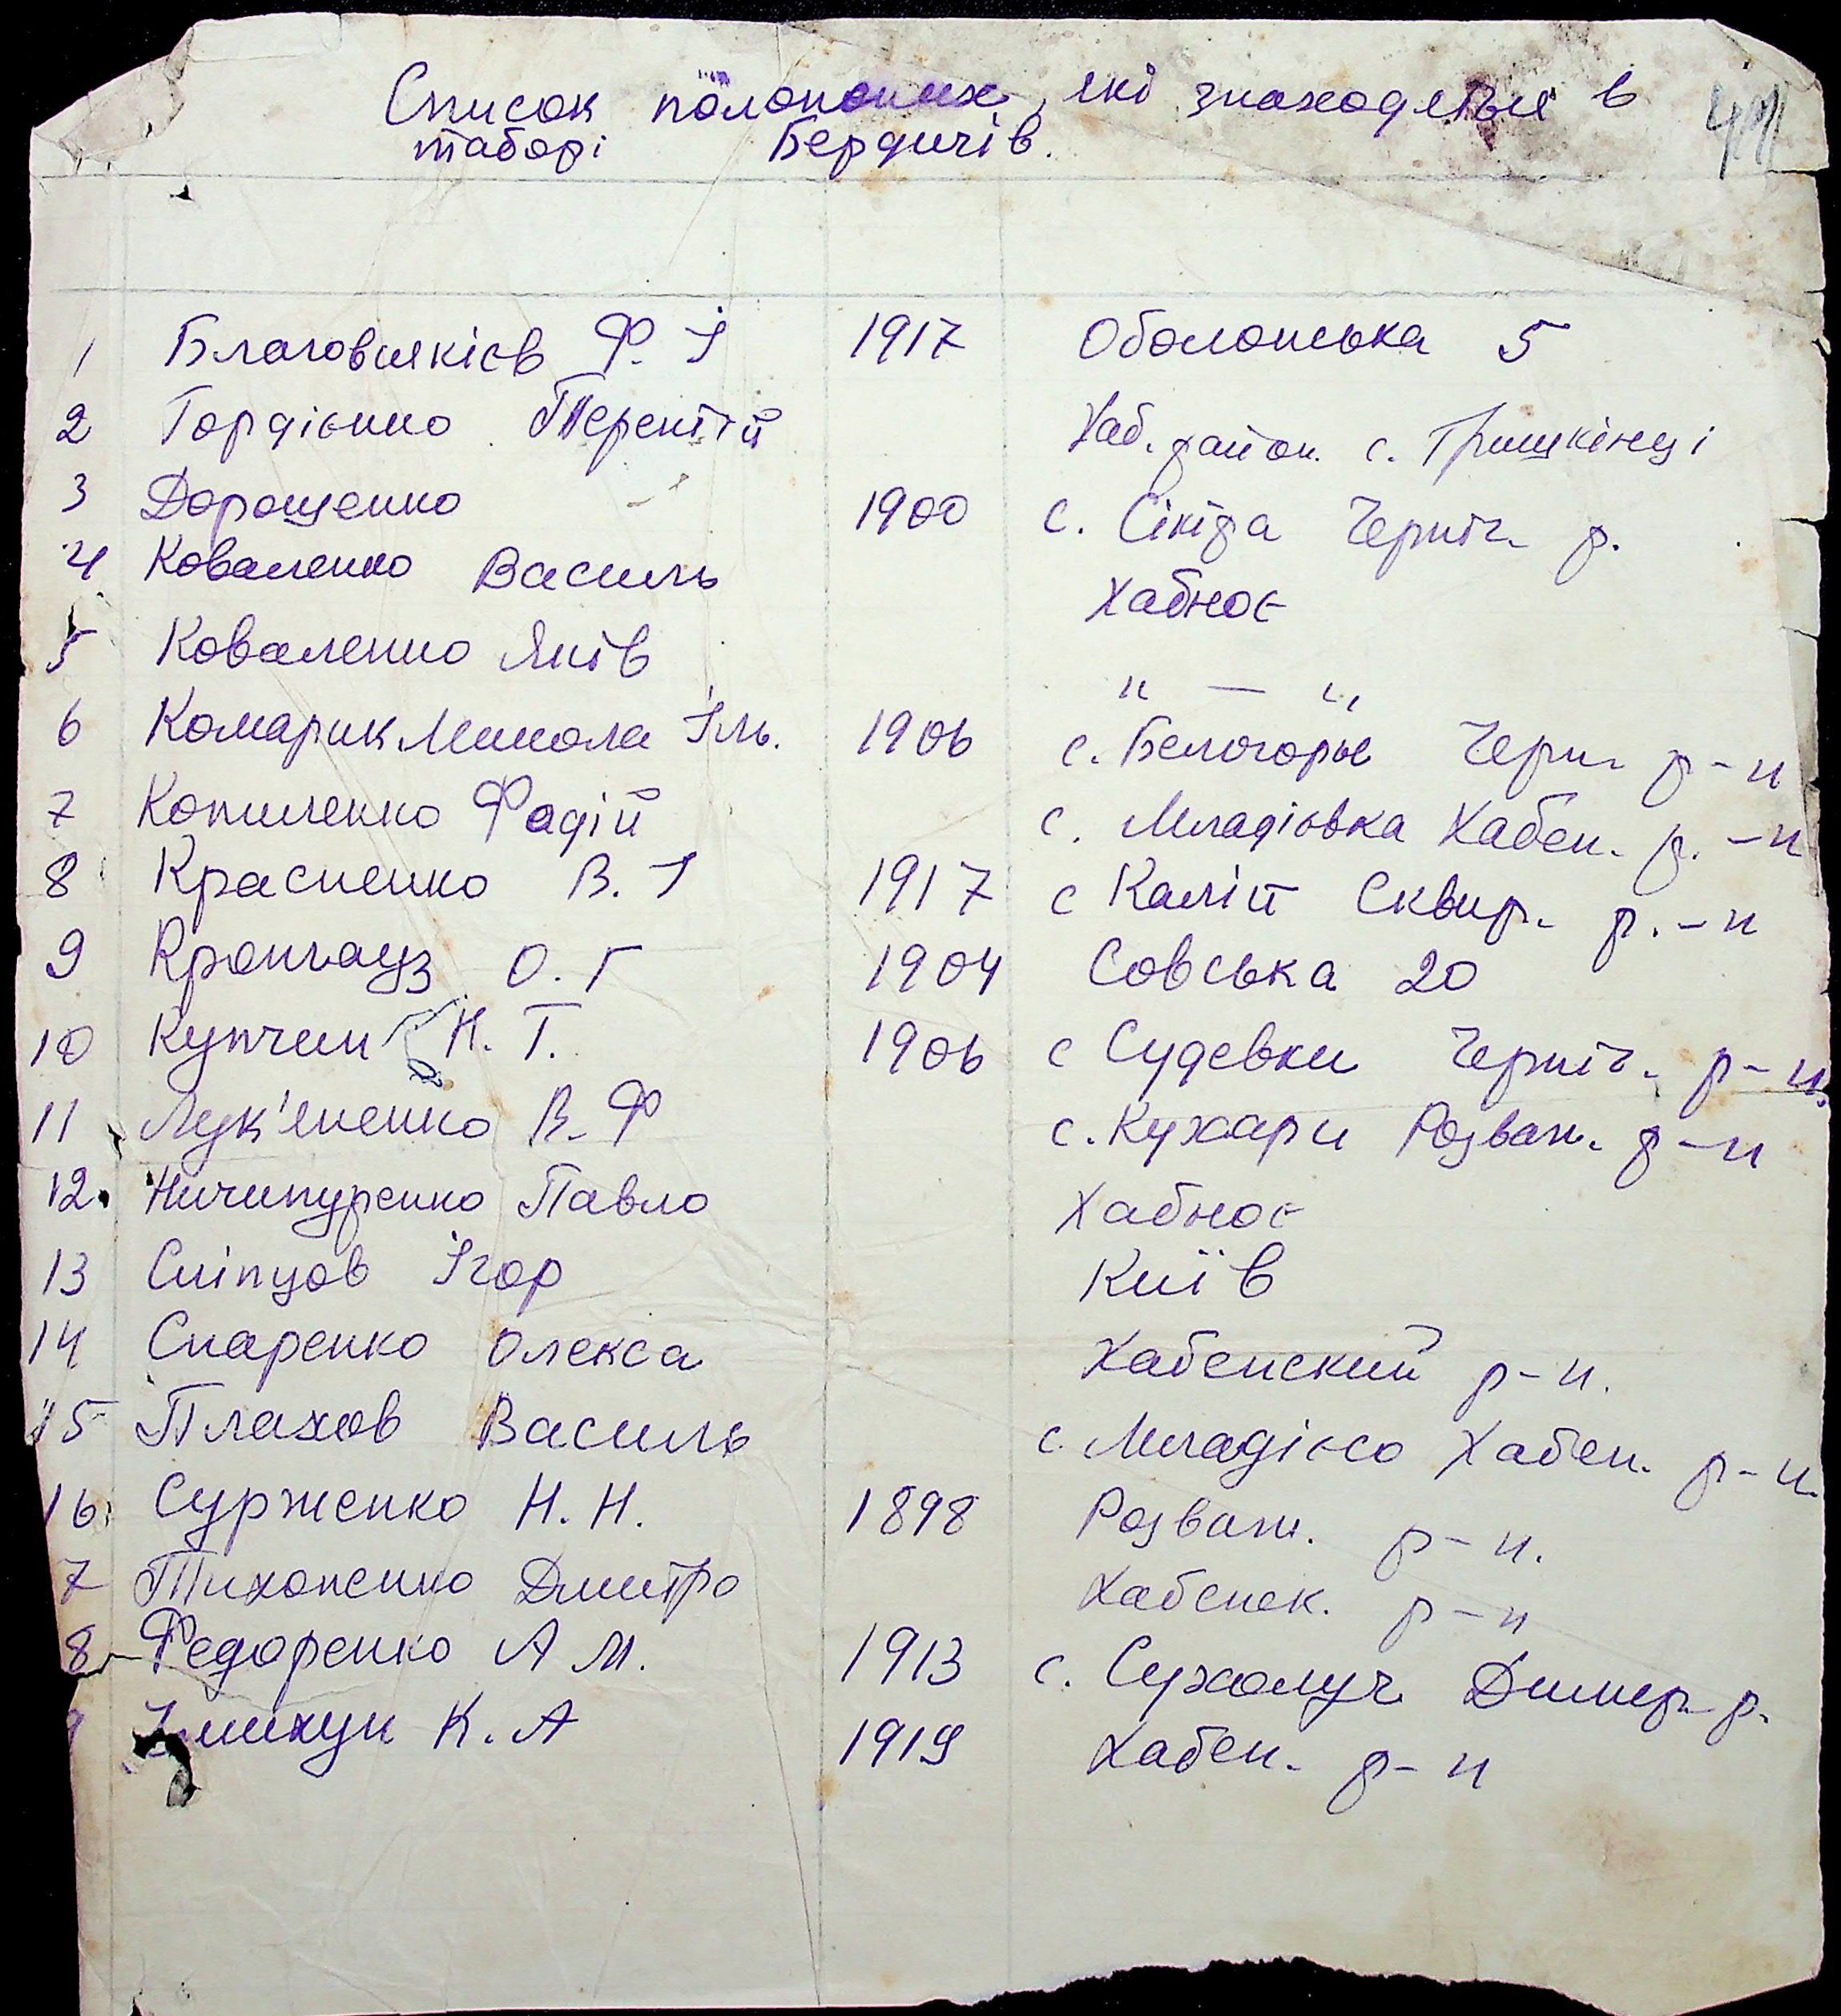 Список полонених, які знаходяться в
таборі Бердичів.
1 Благовискієв Ф. І 1917 Оболонська 5
2 Гордієнко Терентій Хаб. район. с. Гришкінці
3 Дорощенко 1900 с. Сікіра Черніг. р.
4 Коваленко Василь Хабноє
5 Коваленко Яків " — "
6 Комарик Микола Іль. 1906 с. Белогорье Черн. р-н
7 Копиленко Фадій с. Младієвка Хабен. р.-н
8 Красненко В. І 1917 с Каліп Сквир. р.-н
9 Кронгауз О. Г 1904 Совська 20
10 Купчин Н. Т. 1906 с Судевки Черніг. р-н.
11 Лук'яненко В. Ф с. Кухари Розваж. р-н
12. Ничипуренко Павло Хабноє
13 Сліпцов Ігор Київ
14 Скаренко Олекса Хабенский р-н.
15 Плахов Василь с. Младієво Хабен. р-н.
16 Сурженко Н. Н. 1898 Розваж. р-н.
7 Тихоненко Дмитро Хабенск. р-н
8 Федоренко А М. 1913 с. Сухолуч Димер. р.
К. А 1919 Хабен. р-н